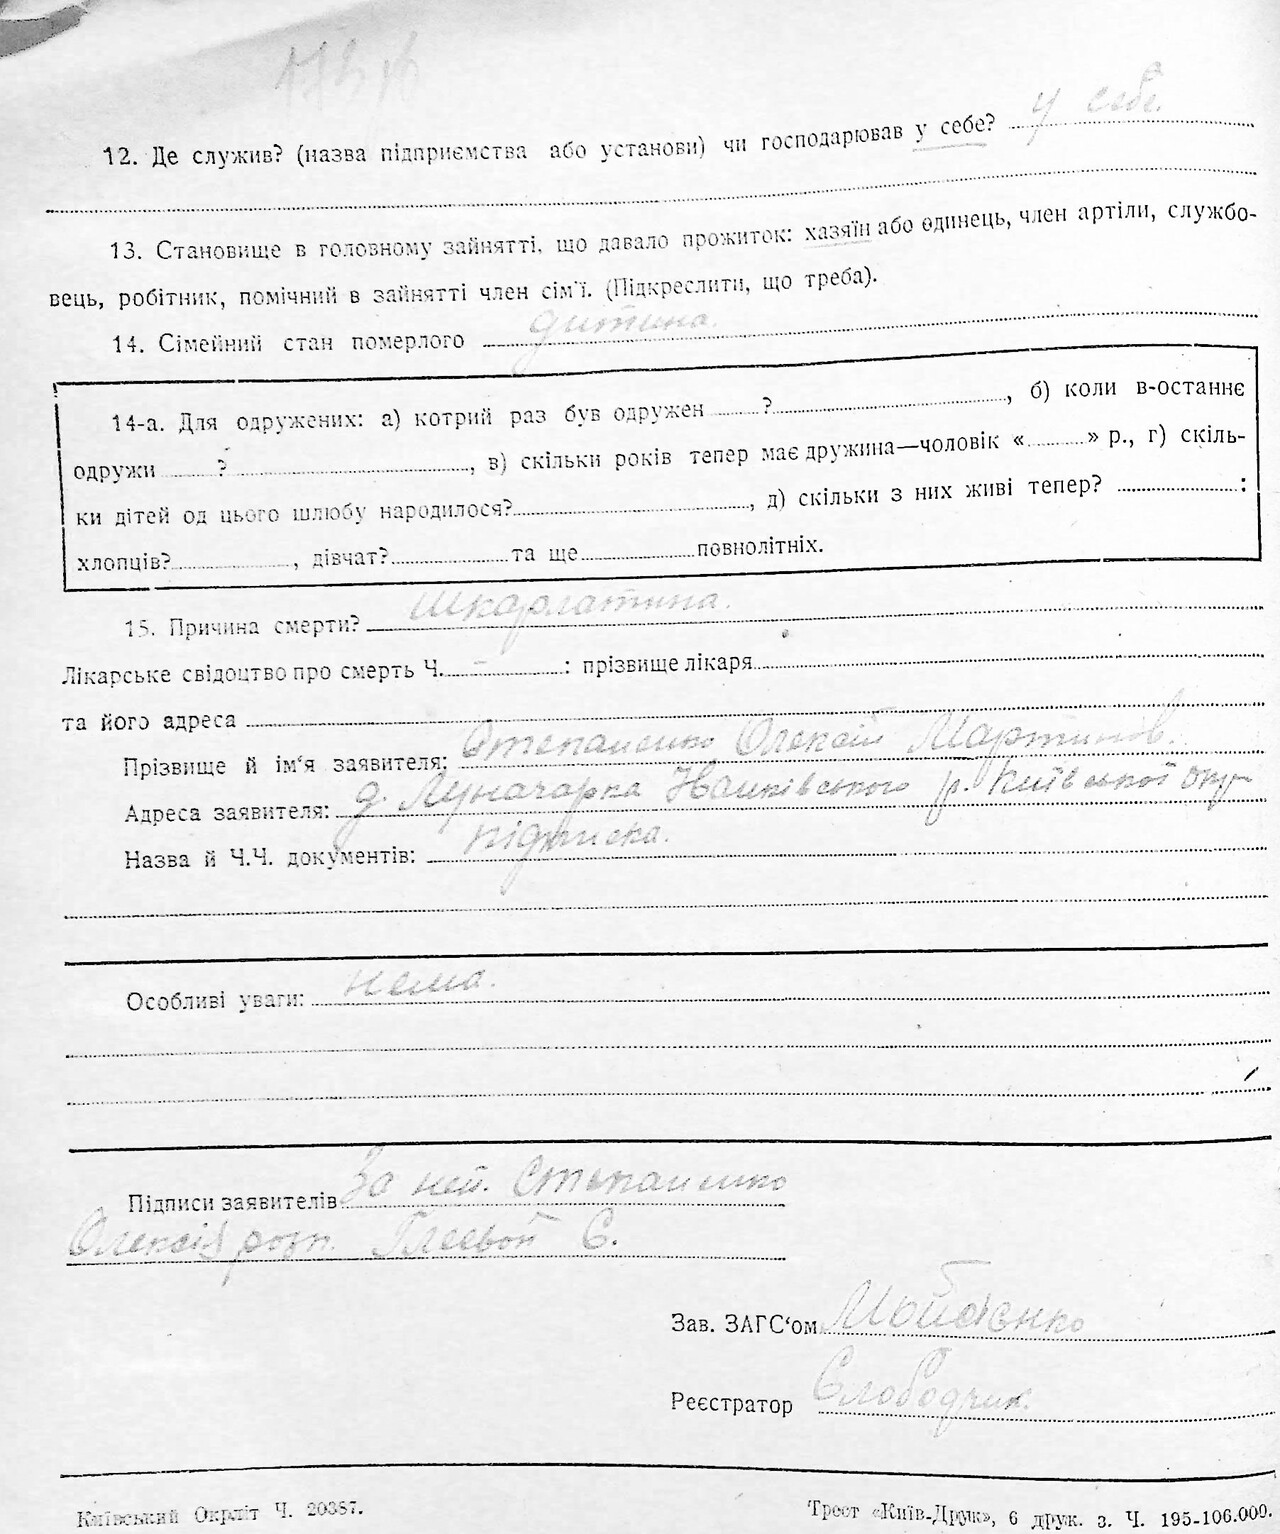 12. Де служив? (назва підприємства або установи) чи господарював у себе? у себе.
13. Становище в головному зайнятті, що давало прожиток: хазяїн або одинець, член артіли, службо-
вець, робітник, помічний в зайнятті член сім'ї. (Підкреслити, що треба).
14. Сімейний стан померлого дитина.
14-а. Для одружених: а) котрий раз був одружен ?, б) коли в-останнє
одружи ?, в) скільки років тепер має дружина—чоловік « » р., г) скіль-
ки дітей од цього шлюбу народилося?, д) скільки з них живі тепер? :
хлопців?, дівчат? та ще повнолітніх.
15. Причина смерти? Шкарлатина.
Лікарське свідоцтво про смерть Ч. - : прізвище лікаря
та його адреса
Прізвище й ім'я заявителя: Степаненко Олексій Мартинов.
Адреса заявителя: д. Луначарка р. Київської окр
Назва й Ч.Ч. документів: підписка.
Особливі уваги: нема.
Підписи заявителів За неп. Степаненко
Олексій розп. С.
Зав. ЗАГС'ом
Реєстратор Слободчик.
Київський Окрліт Ч. 20387.
Трест «Київ-Друк», 6 друк. з. Ч. 195-106.000.